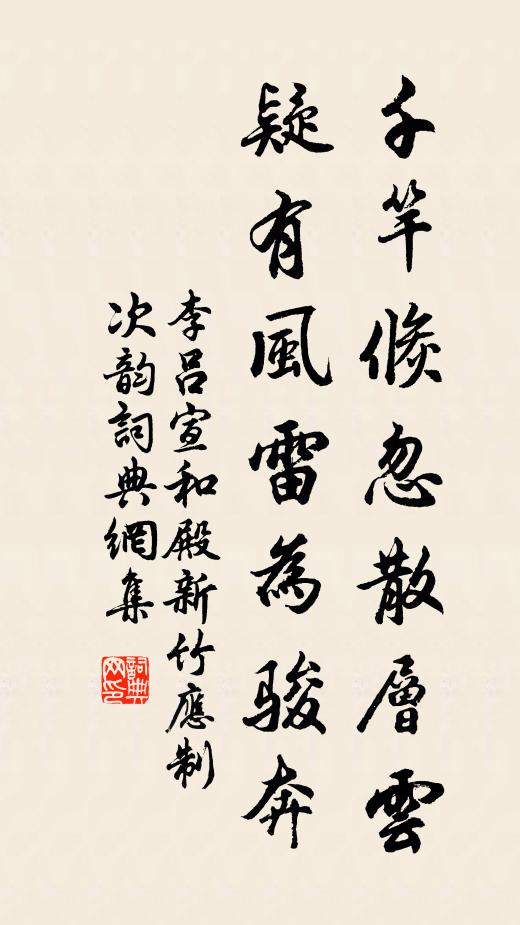 千竿倏忽散層雲
疑有風雷為駿奔
李呂宣和殿新竹應制
次韵詞典網集
詞典网印